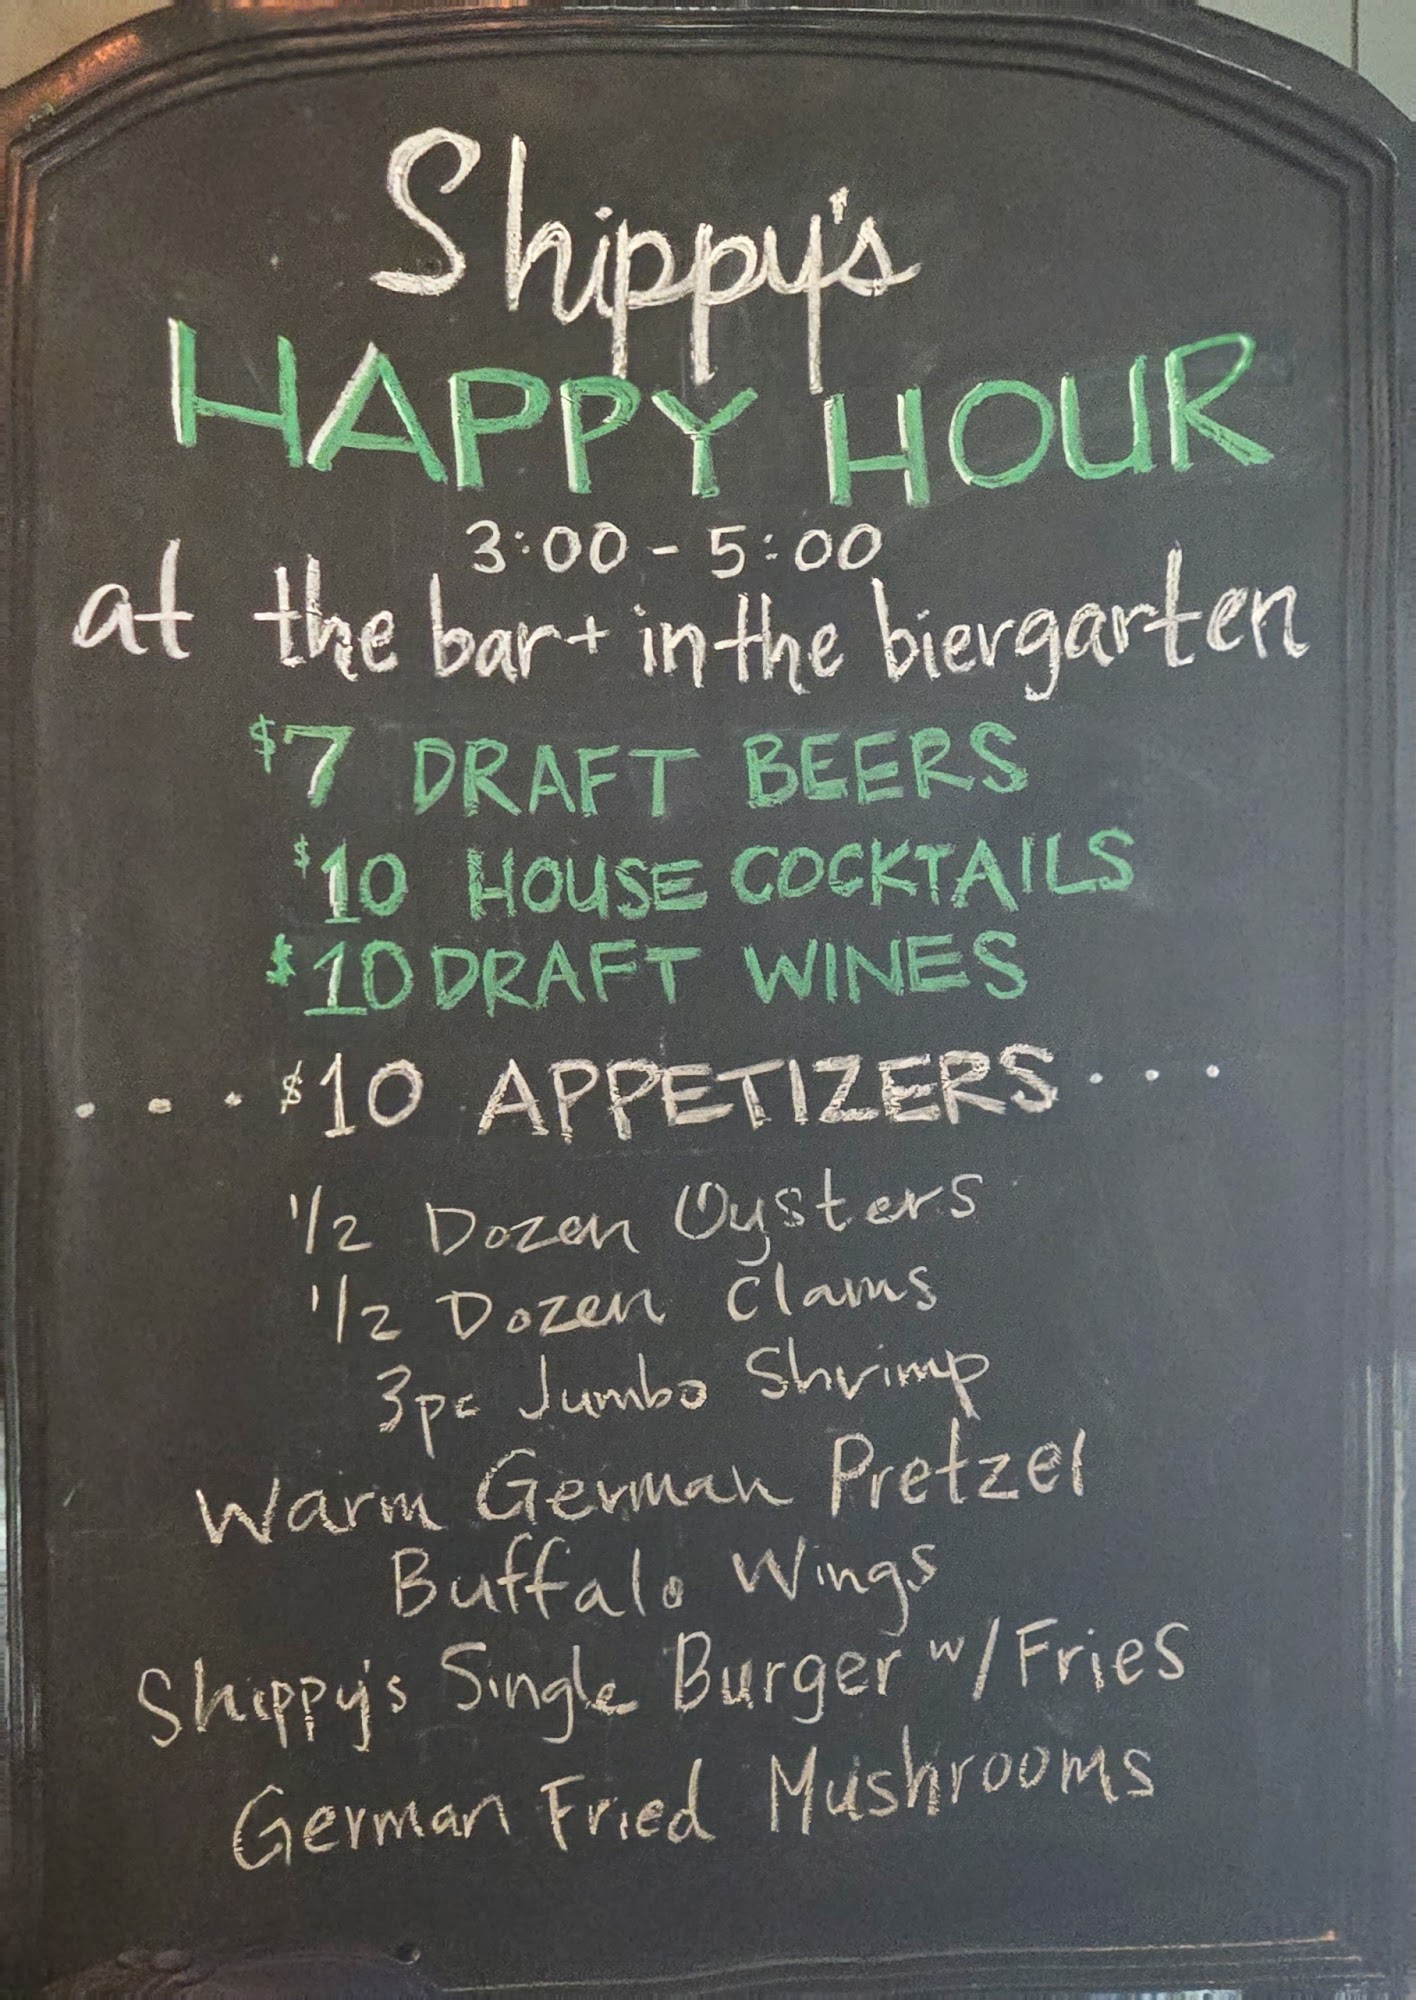 Shippy's
HAPPY HOUR
3:00 - 5:00
at the bar + in the biergarten
$7 DRAFT BEERS
$10 HOUSE COCKTAILS
$10 DRAFT WINES
. . . $10 APPETIZERS . . .
1/2 Dozen Oysters
1/2 Dozen Clams
3pc Jumbo Shrimp
Warm German Pretzel
Buffalo Wings
Shippy's Single Burger w/Fries
German Fried Mushrooms